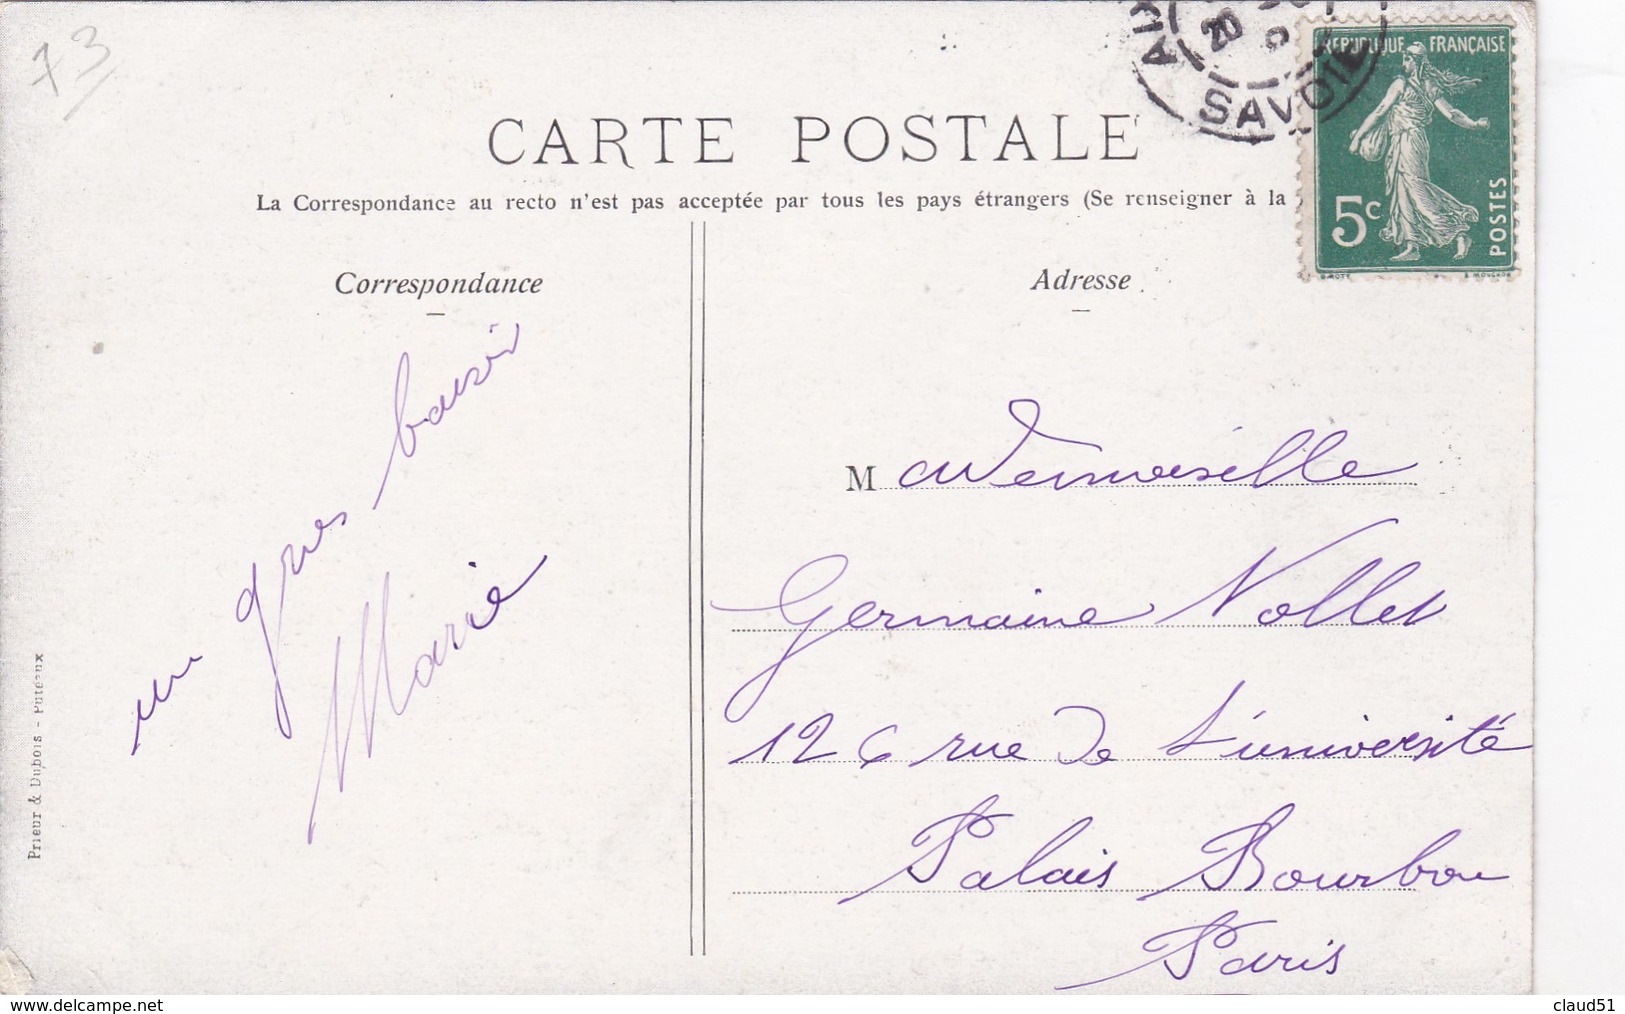 73
20
SAVOIE
REPUBLIQUE FRANÇAISE
5c
POSTES
O. ROTY
E. MOUCHON
CARTE POSTALE
La Correspondance au recto n'est pas acceptée par tous les pays étrangers (Se renseigner à la
Correspondance
Adresse
un gros baiser
Marie
Mademoiselle
Germaine Nollet
126 rue de L'université
Palais Bourbon
Paris
Prieur & Dubois - Puteaux
www.delcampe.net
claud51